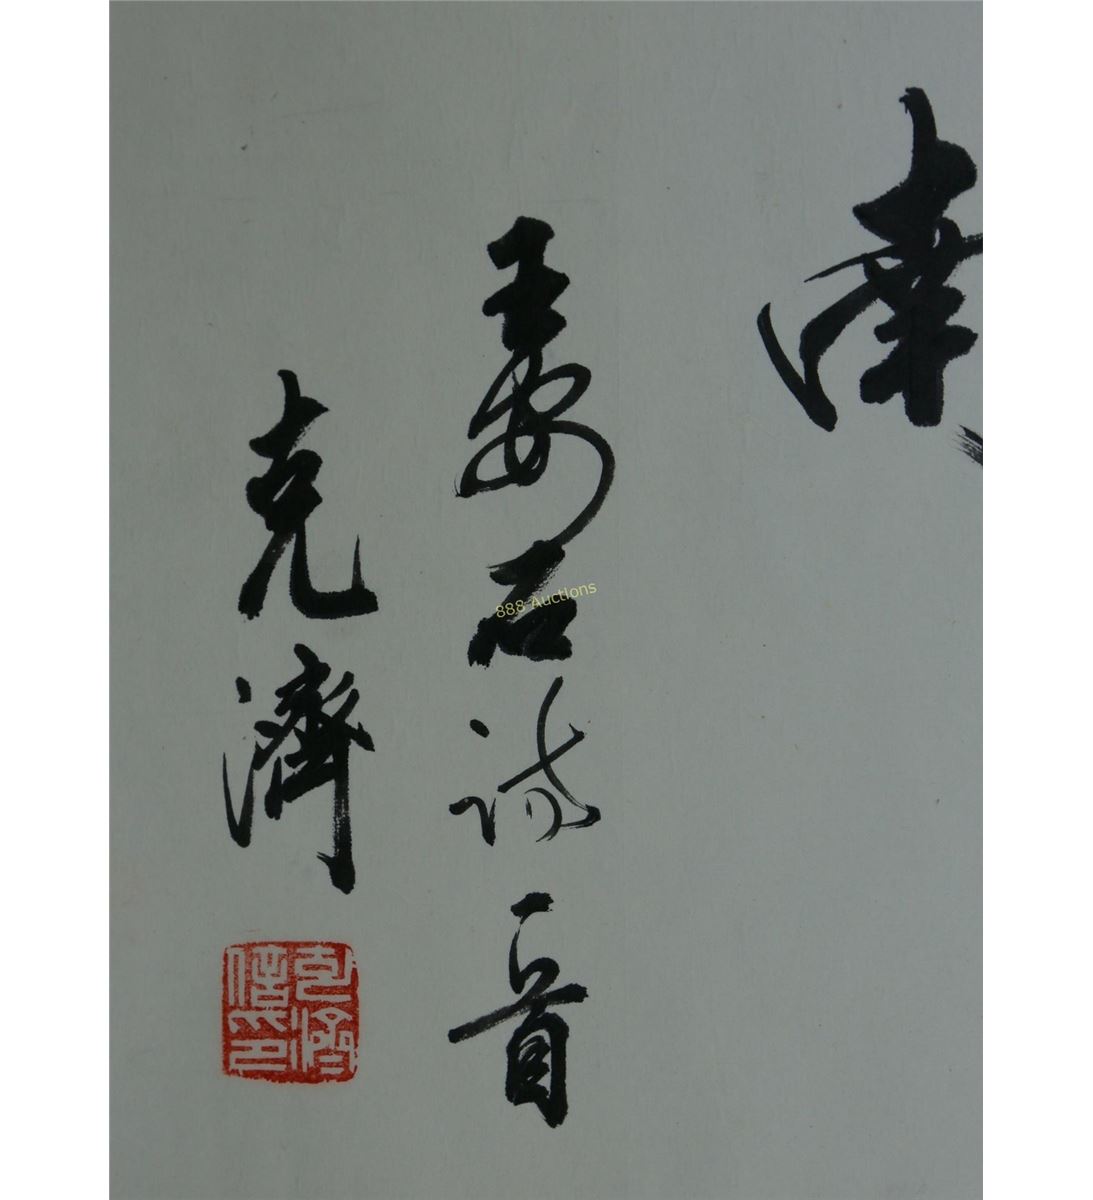 王安石詩一首
克濟
克濟信印
888 Auctions